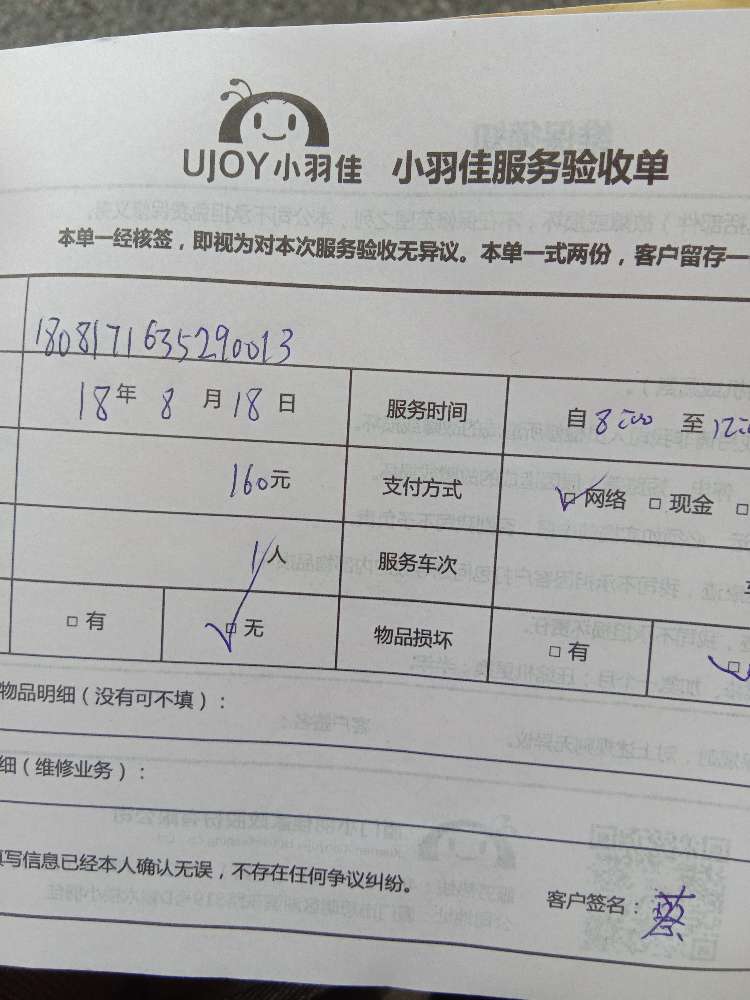 UJOY小羽佳 小羽佳服务验收单
本单一经核签，即视为对本次服务验收无异议。本单一式两份，客户留存一
1808171635290013
18年 8 月 18 日 服务时间 自 8:00 至
160元 支付方式 网络 现金
1人 服务车次
有 无 物品损坏 有
物品明细（没有可不填）：
细（维修业务）：
填写信息已经本人确认无误，不存在任何争议纠纷。
客户签名：蔡